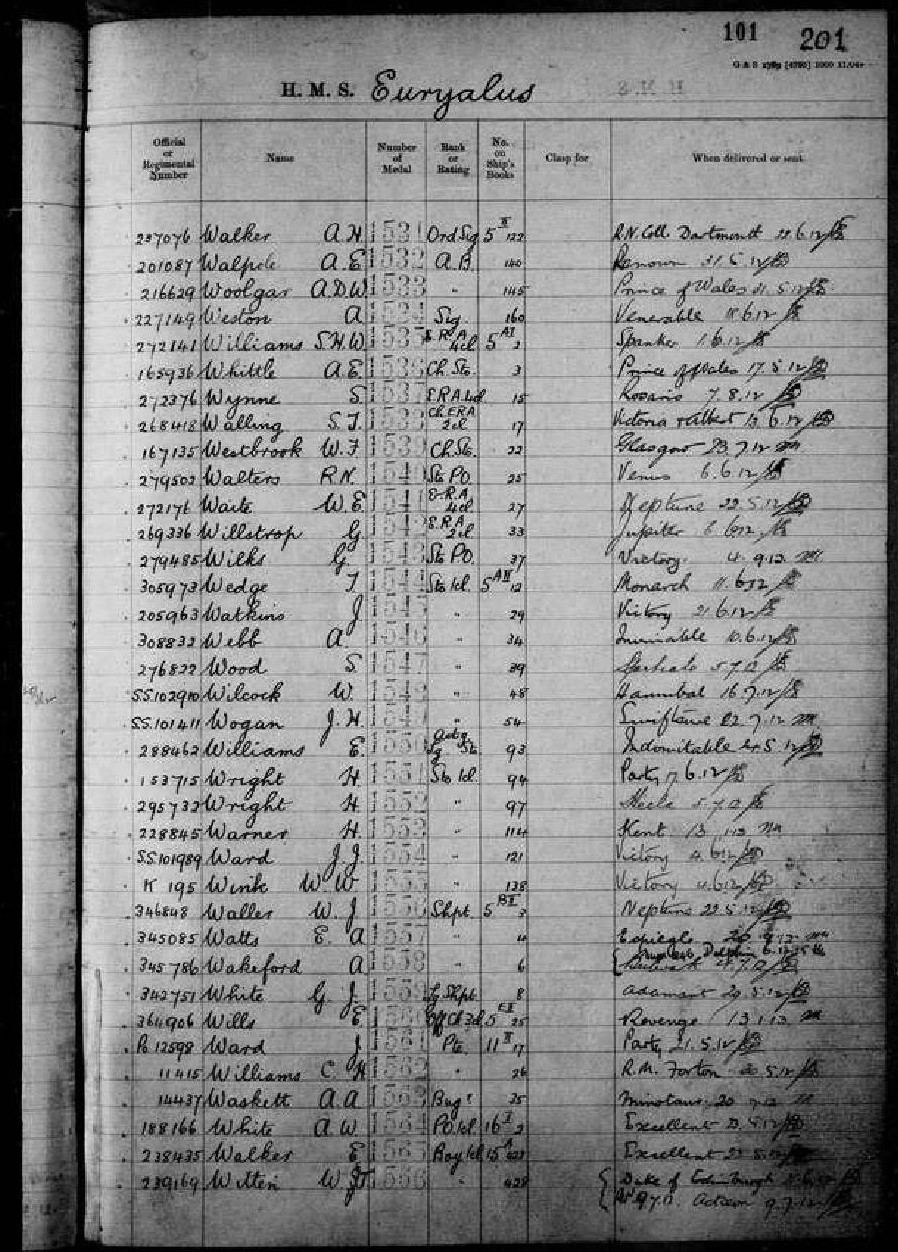 101 201
G & S
H. M. S. Euryalus
Official or Regimental Number Name Number of Medal Rank or Rating No. on Ship's Books Clasp for When delivered or sent
237076 Walker A.H. 1531 Ord Sig 5 II 122 R.N. Coll. Dartmouth 22.6.12
201087 Walpole A.E. 1532 A.B. 140 Renown 31.5.12
216629 Woolgar A.D.W. 1533 " 145 Prince of Wales 21.5.12
227149 Weston A 1534 Sig 160 Venerable 18.6.12
272141 Williams S.H.W. 1535 E.R.A. 4cl 5 AI 2 Spanker 1.6.12
165936 Whittle A.E. 1536 Ch. Sto. 3 Prince of Wales 17.5.12
272376 Wynne S. 1537 E.R.A. 4cl 15 Rosario 7.8.12
268418 Walling S.J. 1538 Ch. E.R.A. 2cl 17 Victoria & Albert 13.6.12
167135 Westbrook W.F. 1539 Ch. Sto. 22 Glasgow 23.7.12
279502 Walters R.N. 1540 Sto P.O. 25 Venus 6.6.12
272176 Waite W.E. 1541 E.R.A. 4cl 27 Neptune 22.5.12
269336 Willstrop G. 1542 E.R.A. 2cl 33 Jupiter 6.6.12
279485 Wilks G. 1543 Sto P.O. 37 Victory 4.9.13
305973 Wedge T 1544 Sto 1cl. 5 AII 12 Monarch 11.6.12
205963 Watkins J 1545 " 29 Victory 21.6.12
308832 Webb A. 1546 " 34 Invincible 10.6.12
276822 Wood S. 1547 " 39 5.7.12
SS.102910 Wilcock W. 1548 " 48 Hannibal 16.7.12
SS.101411 Wogan J.H. 1549 " 54 Swiftsure 22.7.12
288462 Williams E. 1550 Actg Lg Sto. 93 Indomitable 5.12
153715 Wright H. 1551 Sto 1cl. 94 Party 17.6.12
295732 Wright H. 1552 " 97 Hecla 5.7.12
228845 Warner H. 1553 " 114 Kent 13.1.13
SS.101989 Ward J.J. 1554 " 121 Victory 4.6.12
K 195 Wink W.W. 1555 " 138 Victory 4.6.12
346848 Waller W.J. 1556 Shpt. 5 BI 3 Neptune 22.5.12
345085 Watts E.A. 1557 " 4 Espiegle 20.9.12
345786 Wakeford A 1558 " 6 Dolphin
342751 White G.J. 1559 Lg. Shpt. 8 Adamant 29.5.12
364906 Wills E. 1560 Off Ck 3cl 5 EI 25 Revenge 13.1.13
Po 12598 Ward J. 1561 Pte. 11 II 17 Party 21.5.12
11415 Williams C.H. 1562 " 26 R.M. Forton 20.5.12
14437 Waskett A.A. 1563 Bugr 25 Minotaur 20
188166 White A.W. 1564 P.O. 1cl 16 I 2 Excellent 5.12
238435 Walker E. 1565 Boy 1cl 15 A Excellent 22.5.12
239169 Witten W.J.T. 1566 " 428 Duke of Edinburgh
Actaeon 9.7.12